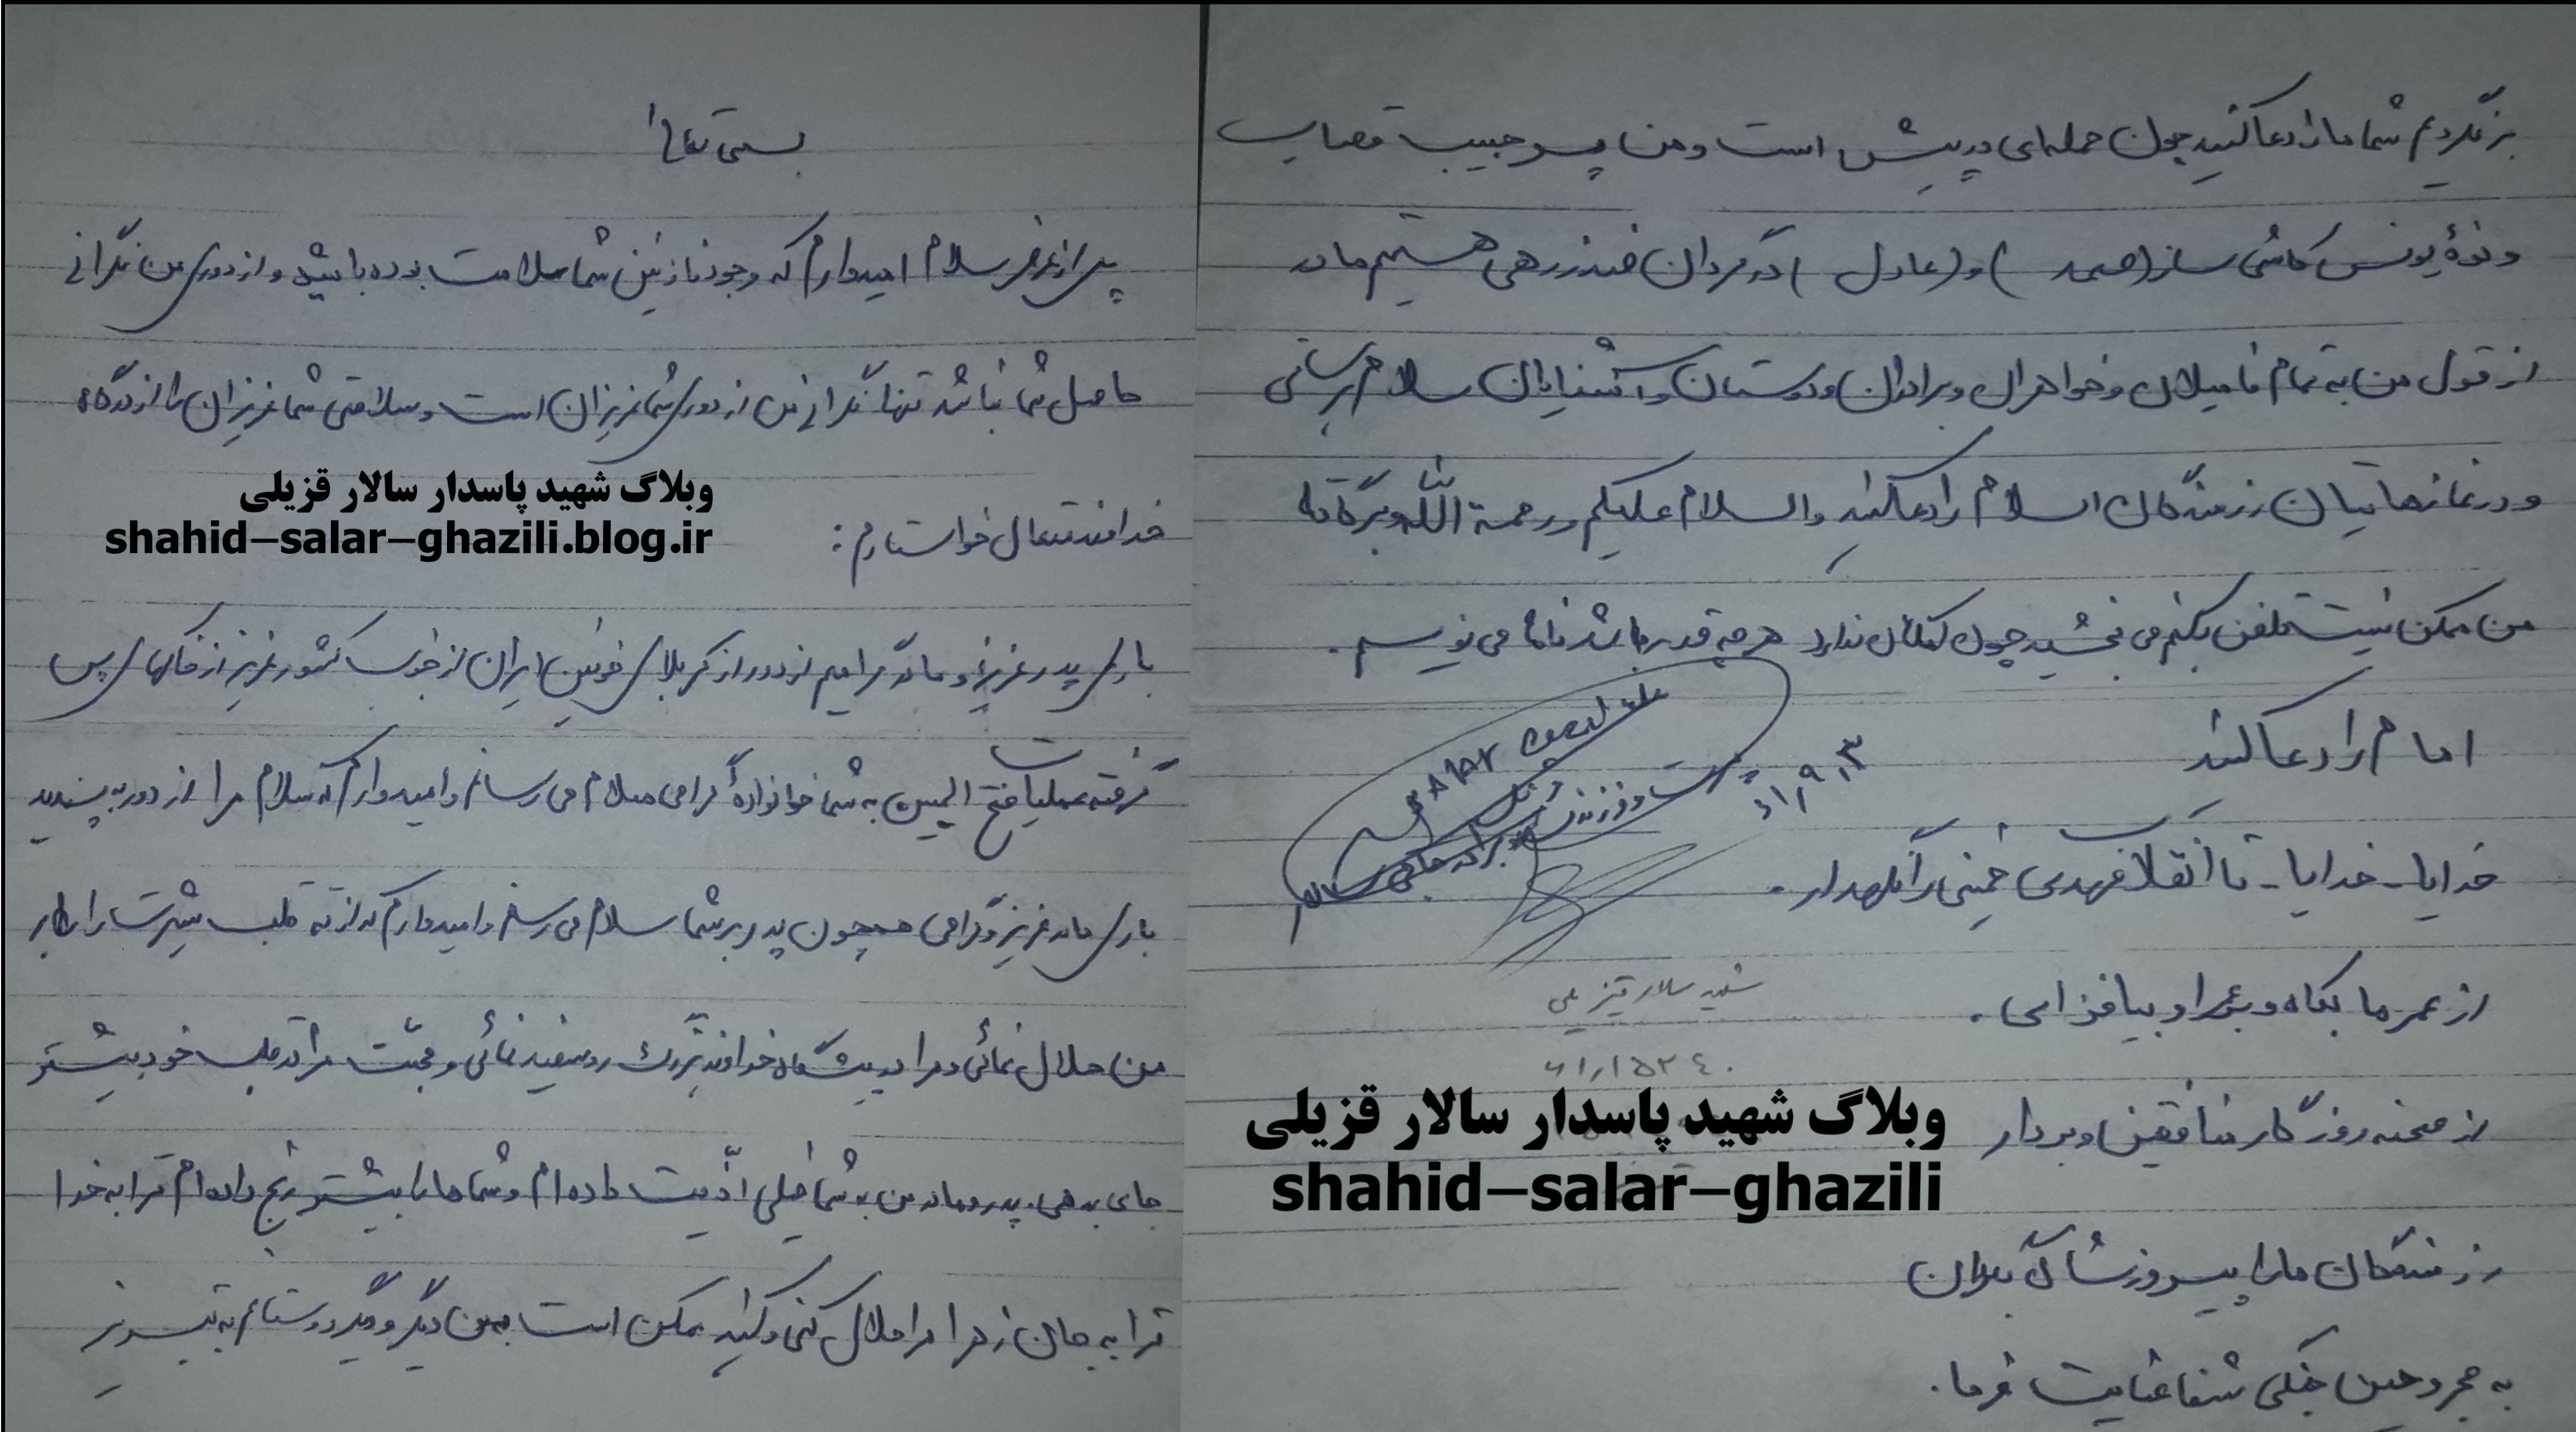 بسمی تعالی
پس از عرض سلام امیدوارم که وجود نازنین شما سلامت بوده باشید و از دوری من نگرانی
حاصل شما نباشد تنها نگرانی من از دوری شما عزیزان است و سلامتی شما عزیزان را از درگاه
خداوند متعال خواستارم:
وبلاگ شهید پاسدار سالار قزیلی
shahid-salar-ghazili.blog.ir
باری پدر عزیز و مادر گرامیم از دور از کربلای خونین ایران از خوب کشور عزیز از خاکهای پس
گرفته عملیات فتح المبین به شما خانوادهٔ گرامی سلام می رسانم و امیدوارم که سلام مرا از دور بپسندید
باری مادر عزیز و گرامی همچون پدر بر شما سلام می رسانم و امیدوارم که از ته قلب شیرت را بکار
من حلال نمائی و مرا در پیشگاه خداوند بزرگ روسفید نمائی و محبت مرا در قلب خود بیشتر
جای بدهی. پدر و مادر من به شما خیلی اذّیت داده ام و شماها را بیشتر رنج داده ام ترا به خدا
ترا به جان زهرا مرا حلال کنی و کنید ممکن است به من دیگر و دیگر دوستانم به تبریز
برنگردم شما مارا دعا کنید چون حمله ای در پیش است و من پسر حبیب قصاب
و نوهٔ یونس کاشی ساز (صمد ) و (عادل ) در گردان هستیم مادر
از قول من به تمام فامیلان و خواهران و برادران و دوستان و آشنایان سلام برسانی
و در نمازهایتان رزمندگان اسلام را دعا کنید والسلام علیکم و رحمة الله و برکاته
من ممکن نیست تلفن بکنم می بخشید چون امکان ندارد هر چه قدر باشد نامه می نویسم.
امام را دعا کنید
۶۱/۹/۳
پسرت و فرزند
خدایا - خدایا - تا انقلاب مهدی خمینی را نگهدار.
از عمر ما بکاه و بر عمر او بیافزای.
شهید سالار قزیلی
وبلاگ شهید پاسدار سالار قزیلی
shahid-salar-ghazili
از صحنه روزگار منافقین و بردار
رزمندگان مارا پیروزشان بگردان
به مجروحین جنگی شفا عنایت فرما.